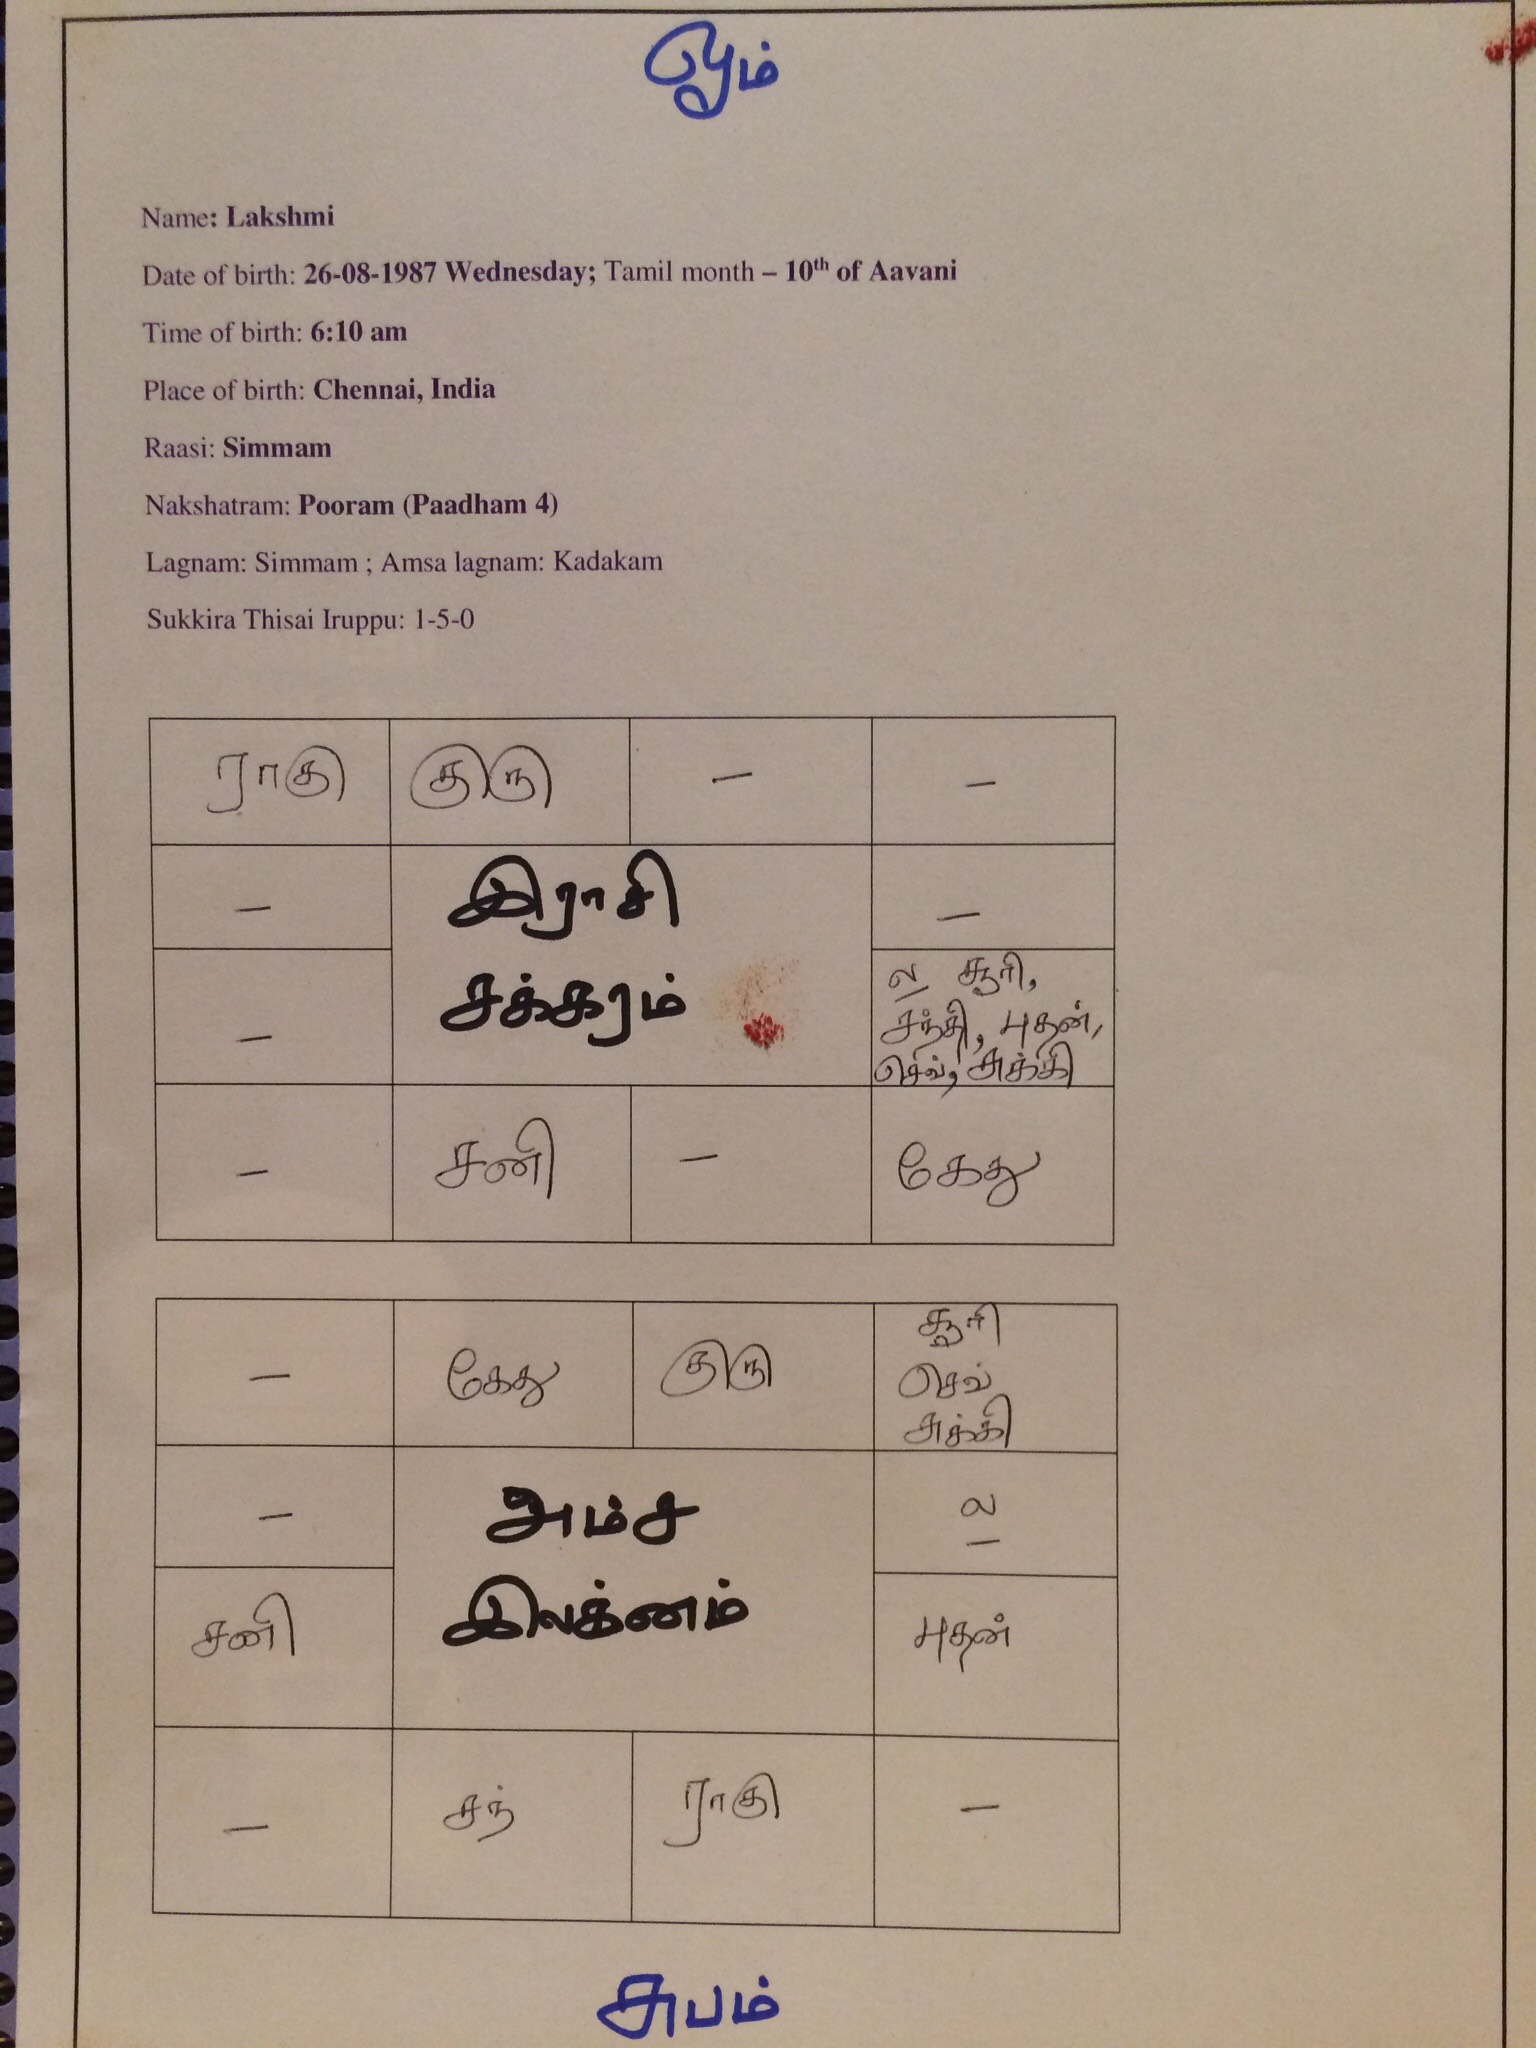 ஓம்
Name: Lakshmi
Date of birth: 26-08-1987 Wednesday; Tamil month – 10th of Aavani
Time of birth: 6:10 am
Place of birth: Chennai, India
Raasi: Simmam
Nakshatram: Pooram (Paadham 4)
Lagnam: Simmam ; Amsa lagnam: Kadakam
Sukkira Thisai Iruppu: 1-5-0
ராகு குரு – –
– இராசி –
சக்கரம்
– ல சூரி,
சந்தி, புதன்,
செவ், சுக்கி
– சனி – கேது
– கேது குரு சூரி
செவ்
சுக்கி
– அம்ச ல
இலக்னம்
சனி புதன்
– சந் ராகு –
சுபம்